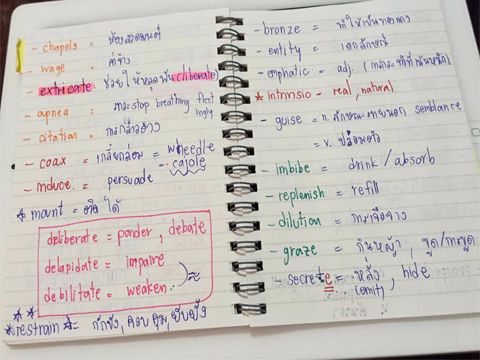 - chapels = ห้องสวดมนต์
- wage = ค่าจ้าง
extricate = ช่วยให้หลุดพ้น (liberate)
- apnea = ภาวะ stop breathing fleet
ingly
- citation = การกล่าวอ้าง
- coax = เกลี้ยกล่อม = wheedle
- cajole
- induce = persuade
* mount = ได้
deliberate = ponder, debate
delapidate = impaire
debilitate = weaken
** restrain = กักขัง, ควบคุม, ยับยั้ง
- bronze = ทำให้เป็นทองแดง
- entity = เอกลักษณ์
- emphatic = adj.
* intrinsio - real, natural
- guise = n. ลักษณะภายนอก semblance
= v. ปลอมตัว
- imbibe = drink / absorb
- replenish = refill
- dilution = การเจือจาง
- graze = กินหญ้า, ขูด/การขูด
- secrete = หลั่ง, hide
(emit)